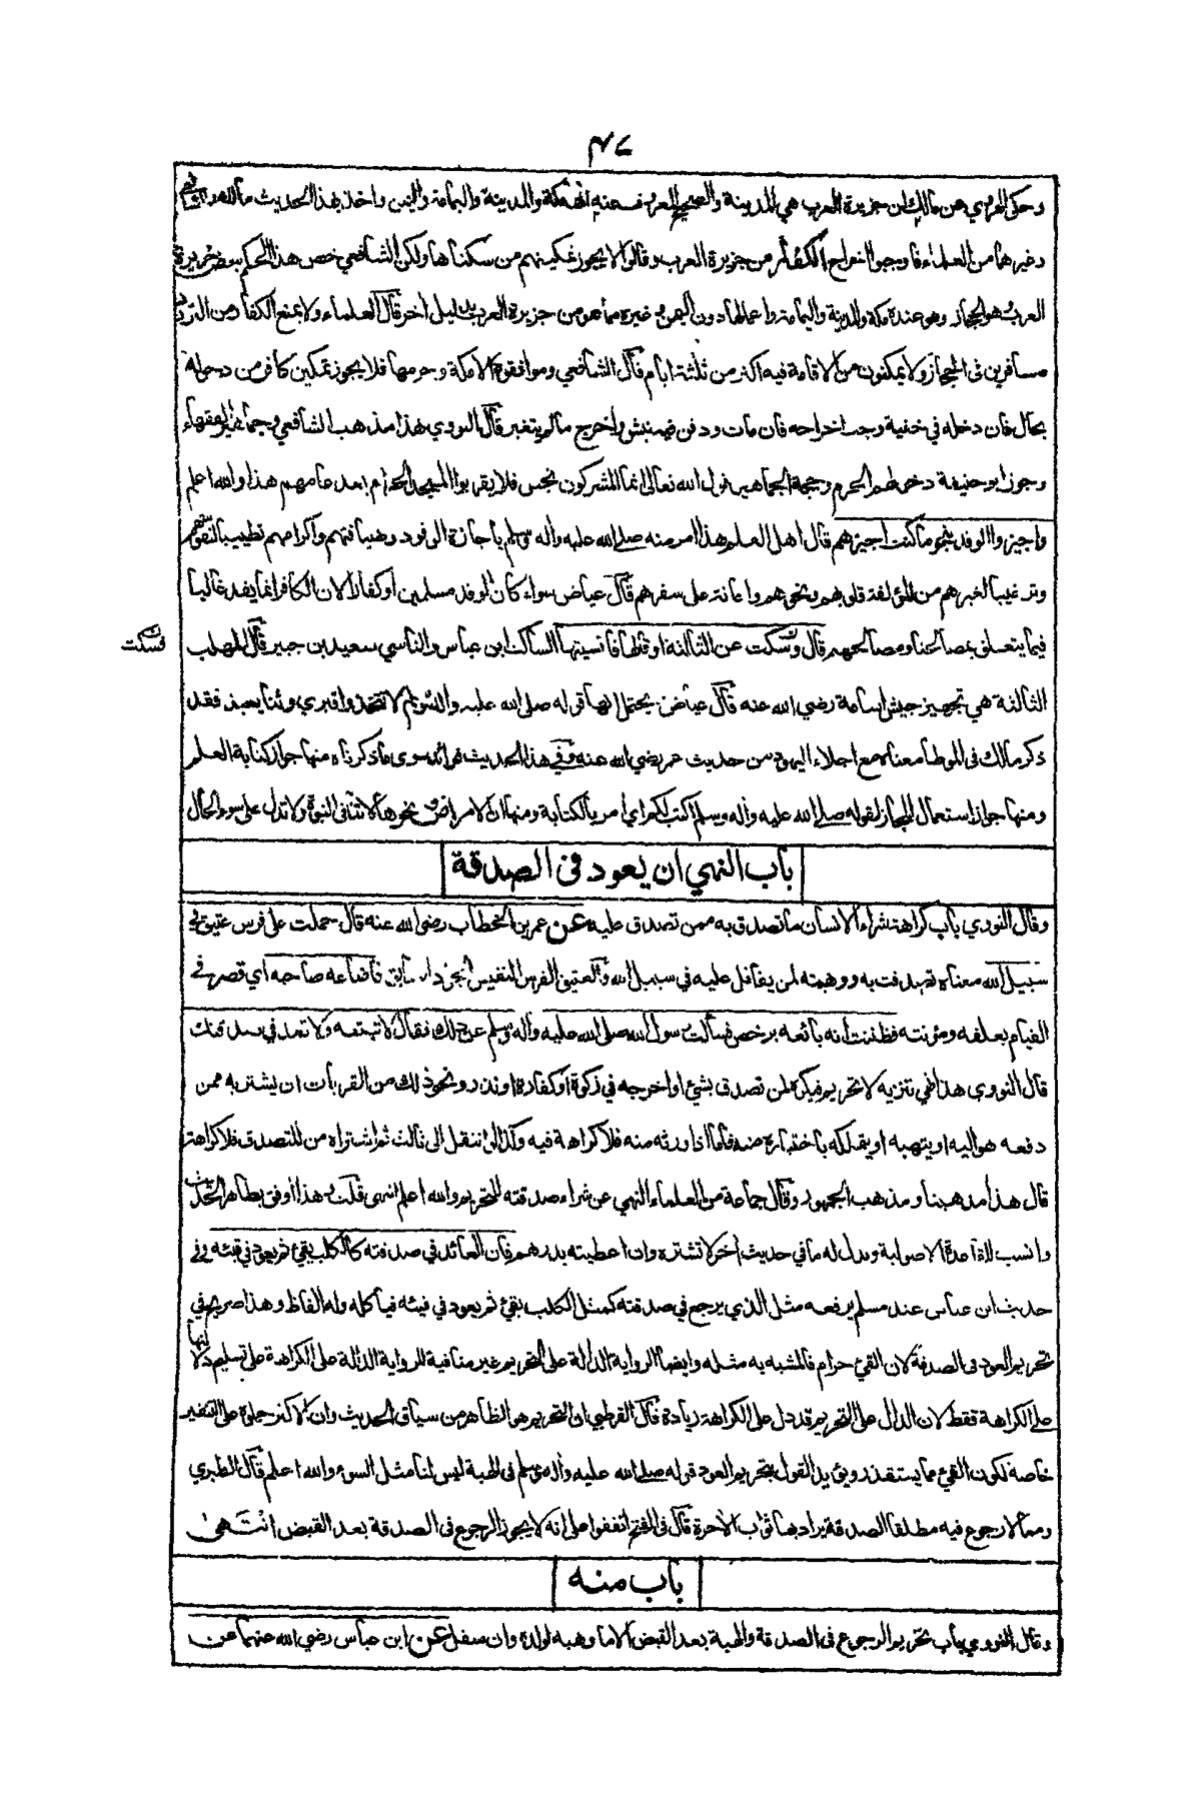 ٤٧
وحكى الهروي عن مالك ان جزيرة العرب هي المدينة والصحيح المعروف عنه انها مكة والمدينة واليمامة واليمن واخذ بهذا الحديث مالك والشافعي
وغيرهما من العلماء فاوجبوا اخراج الكفار من جزيرة العرب وقالوا لا يجوز تمكينهم من سكناها ولكن الشافعي خص هذا الحكم ببعض جزيرة
العرب هو الحجاز وهو عنده مكة والمدينة واليمامة واعمالها دون اليمن وغيره مما هو من جزيرة العرب بدليل اخر قال العلماء ولا يمنع الكفار من التردد
مسافرين فى الحجاز ولا يمكنون من الاقامة فيه اكثر من ثلثة ايام قال الشافعي وموافقوه الا مكة وحرمها فلا يجوز تمكين كافر من دخوله
بحال فان دخله في خفية وجب اخراجه فان مات ودفن فيه نبش واخرج مالم يتغير قال النووي هذا مذهب الشافعي وجماهير الفقهاء
وجوز ابو حنيفة دخولهم الحرم وحجة الجماهير قول الله تعالى انما المشركون نجس فلا يقربوا المسجد الحرام بعد عامهم هذا والله اعلم
واجيزوا الوفد بنحو ما كنت اجيزهم قال اهل العلم هذا امر منه صلى الله عليه واله وسلم باجازة الوفود وضيافتهم واكرامهم تطييبا لنفوسهم
وترغيبا لغيرهم من المؤلفة قلوبهم ونحوهم واعانة على سفرهم قال عياض سواء كان الوفد مسلمين او كفارا لان الكافر انما يفد غالبا
فيما يتعلق بمصالحنا ومصالحهم قال وسكت عن الثالثة او قالها فانسيتها الساكت ابن عباس والناسي سعيد بن جبير قال المهلب
فسكت
الثالثة هي تجهيز جيش اسامة رضي الله عنه قال عياض يحتمل انها قوله صلى الله عليه واله وسلم لا تتخذوا قبري وثنا يعبد فقد
ذكر مالك فى الموطا معناه مع اجلاء اليهود من حديث عمر رضي الله عنه وفي هذا الحديث فوائد سوى ما ذكرناه منها جواز كتابة العلم
ومنها جواز استعمال المجاز لقوله صلى الله عليه واله وسلم اكتب لكم اي امر بالكتابة ومنها ان الامراض ونحوها لا تنافى النبوة ولا تدل على سوء الحال
باب النهي ان يعود فى الصدقة
وقال النووي باب كراهة شراء الانسان ما تصدق به ممن تصدق عليه عن عمر بن الخطاب رضى الله عنه قال حملت على فرس عتيق في
سبيل الله معناه تصدقت به ووهبته لمن يقاتل عليه في سبيل الله والعتيق الفرس النفيس الجواد السابق فاضاعه صاحبه اي قصر في
القيام بعلفه ومؤنته فظننت انه بائعه برخص فسألت رسول الله صلى الله عليه واله وسلم عن ذلك فقال لا تبتعه ولا تعد في صدقتك
قال النووي هذا نهي تنزيه لا تحريم فيكره لمن تصدق بشئ او اخرجه في زكوة او كفارة او نذر ونحو ذلك من القربات ان يشتريه ممن
دفعه هو اليه او يتهبه او يتملكه باختياره منه فاما اذا ورثه منه فلا كراهة فيه وكذا لو انتقل الى ثالث ثم اشتراه منه المتصدق فلا كراهة
قال هذا مذهبنا ومذهب الجمهور وقال جماعة من العلماء النهي عن شراء صدقته للتحريم والله اعلم انتهى قلت وهذا اوفق بظاهر الحديث
وانسب للقاعدة الاصولية ويدل له ما في حديث اخر لا تشتره وان اعطيته بدرهم فان العائد في صدقته كالكلب يقيئ ثم يعود في قيئه وفي
حديث ابن عباس عند مسلم يرفعه مثل الذي يرجع في صدقته كمثل الكلب يقيئ ثم يعود في قيئه فيأكله وله الفاظ وهذا صريح في
تحريم العود فى الصدقة لان القيئ حرام فالمشبه به مثله وايضا الرواية الدالة على التحريم غير منافية للرواية الدالة على الكراهة على تسليم دلالتها
على الكراهة فقط لان الدال على التحريم قد دل على الكراهة وزيادة قال القرطبي ان التحريم هو الظاهر من سياق الحديث وان الاكثر حملوه على التنفير
خاصة لكون القيئ مما يستقذر ويؤيد القول بتحريم العود قوله صلى الله عليه واله وسلم فى الهبة ليس لنا مثل السوء والله اعلم قال الطبري
ومما لا رجوع فيه مطلقا الصدقة يراد بها ثواب الاخرة قال فى الفتح اتفقوا على انه لا يجوز الرجوع فى الصدقة بعد القبض انتهى
باب منه
وقال النووي باب تحريم الرجوع فى الصدقة والهبة بعد القبض الا ما وهبه لولده وان سفل عن ابن عباس رضي الله عنهما عن